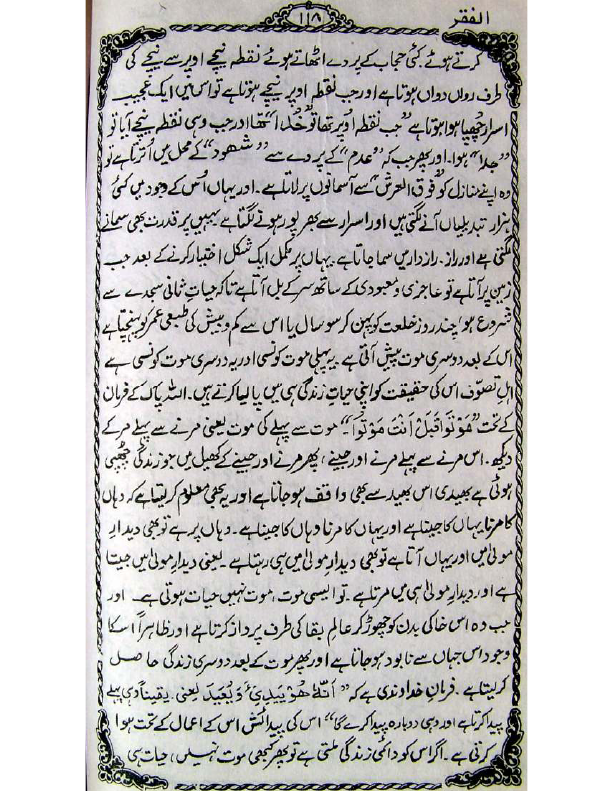 الفقر
۱۱۸
کرتے ہوئے کئی حجاب کے پردے اٹھاتے ہوئے نقطہ نیچے اوپر سے نیچے کی
طرف رواں دواں ہوتا ہے اور جب نقطہ اوپر نیچے ہوتا ہے تو اس میں ایک عجیب
اسرار چھپا ہوا ہوتا ہے "جب نقطہ اوپر تھا تو "خُدا" تھا اور جب وہی نقطہ نیچے آیا تو
"جدا" ہوا۔ اور پھر جب کہ "عدم" کے پردے سے "شھود" کے محل میں اُترتا ہے تو
وہ اپنے منازل کو "فوق العرش" سے آسمانوں پر لاتا ہے۔ اور یہاں اُس کے وجود میں کئی
ہزار تبدیلیاں آنے لگتی ہیں اور اسرار سے بھرپور ہونے لگتا ہے یہیں پر قدرت بھی سمانے
لگتی ہے اور راز۔ رازدار میں سما جاتا ہے۔ یہاں پر مکمل ایک شکل اختیار کرنے کے بعد جب
زمین پر آتا ہے تو عاجزی و معبودی کے ساتھ سر کے بل آتا ہے تاکہ حیاتِ ثانی سجدے سے
شروع ہو۔ چند روز خلعت کو پہن کر سو سال یا اس سے کم و بیش کی طبعی عمر کو پہنچتا ہے
اس کے بعد دوسری موت پیش آتی ہے۔ یہ پہلی موت کونسی اور یہ دوسری موت کونسی ہے
اہلِ تصوّف اس کی حقیقت کو اپنی حیاتِ زندگی ہی میں پا لیا کرتے ہیں۔ اللہ پاک کے فرمان
کے تحت "مُوْتُوا قَبْلَ اَنْتَ مُوْتُوا"۔ موت سے پہلے کی موت یعنی مرنے سے پہلے مر کے
دیکھ۔ اس مرنے سے پہلے مرنے اور جینے، پھر مرنے اور جینے کے کھیل میں جو زندگی چھپی
ہوئی ہے بھیدی اس بھید سے بھی واقف ہو جاتا ہے اور یہ بھی معلوم کر لیتا ہے کہ وہاں
کا مرنا یہاں کا جینا ہے اور یہاں کا مرنا وہاں کا جینا ہے۔ وہاں پر ہے تو بھی دیدارِ
مولیٰ میں اور یہاں آتا ہے تو بھی دیدارِ مولیٰ میں ہی رہتا ہے۔ یعنی دیدارِ مولیٰ میں جیتا
ہے اور دیدارِ مولیٰ ہی میں مرتا ہے۔ تو ایسی موت، موت نہیں حیات ہوتی ہے۔ اور
جب وہ اس خاکی بدن کو چھوڑ کر عالمِ بقا کی طرف پرواز کرتا ہے اور ظاہراً اسکا
وجود اس جہاں سے نابود ہو جاتا ہے اور پھر موت کے بعد دوسری زندگی حاصل
کر لیتا ہے۔ فرمانِ خداوندی ہے کہ "اِنَّهٗ هُوَ يُبْدِئُ وَ يُعِيْدُ یعنی۔ یقیناً وہی پہلے
پیدا کرتا ہے اور وہی دوبارہ پیدا کرے گا" اس کی پیدائش اس کے اعمال کے تحت ہوا
کرتی ہے۔ اگر اس کو دائمی زندگی ملتی ہے تو پھر کبھی موت نہیں، حیات ہی